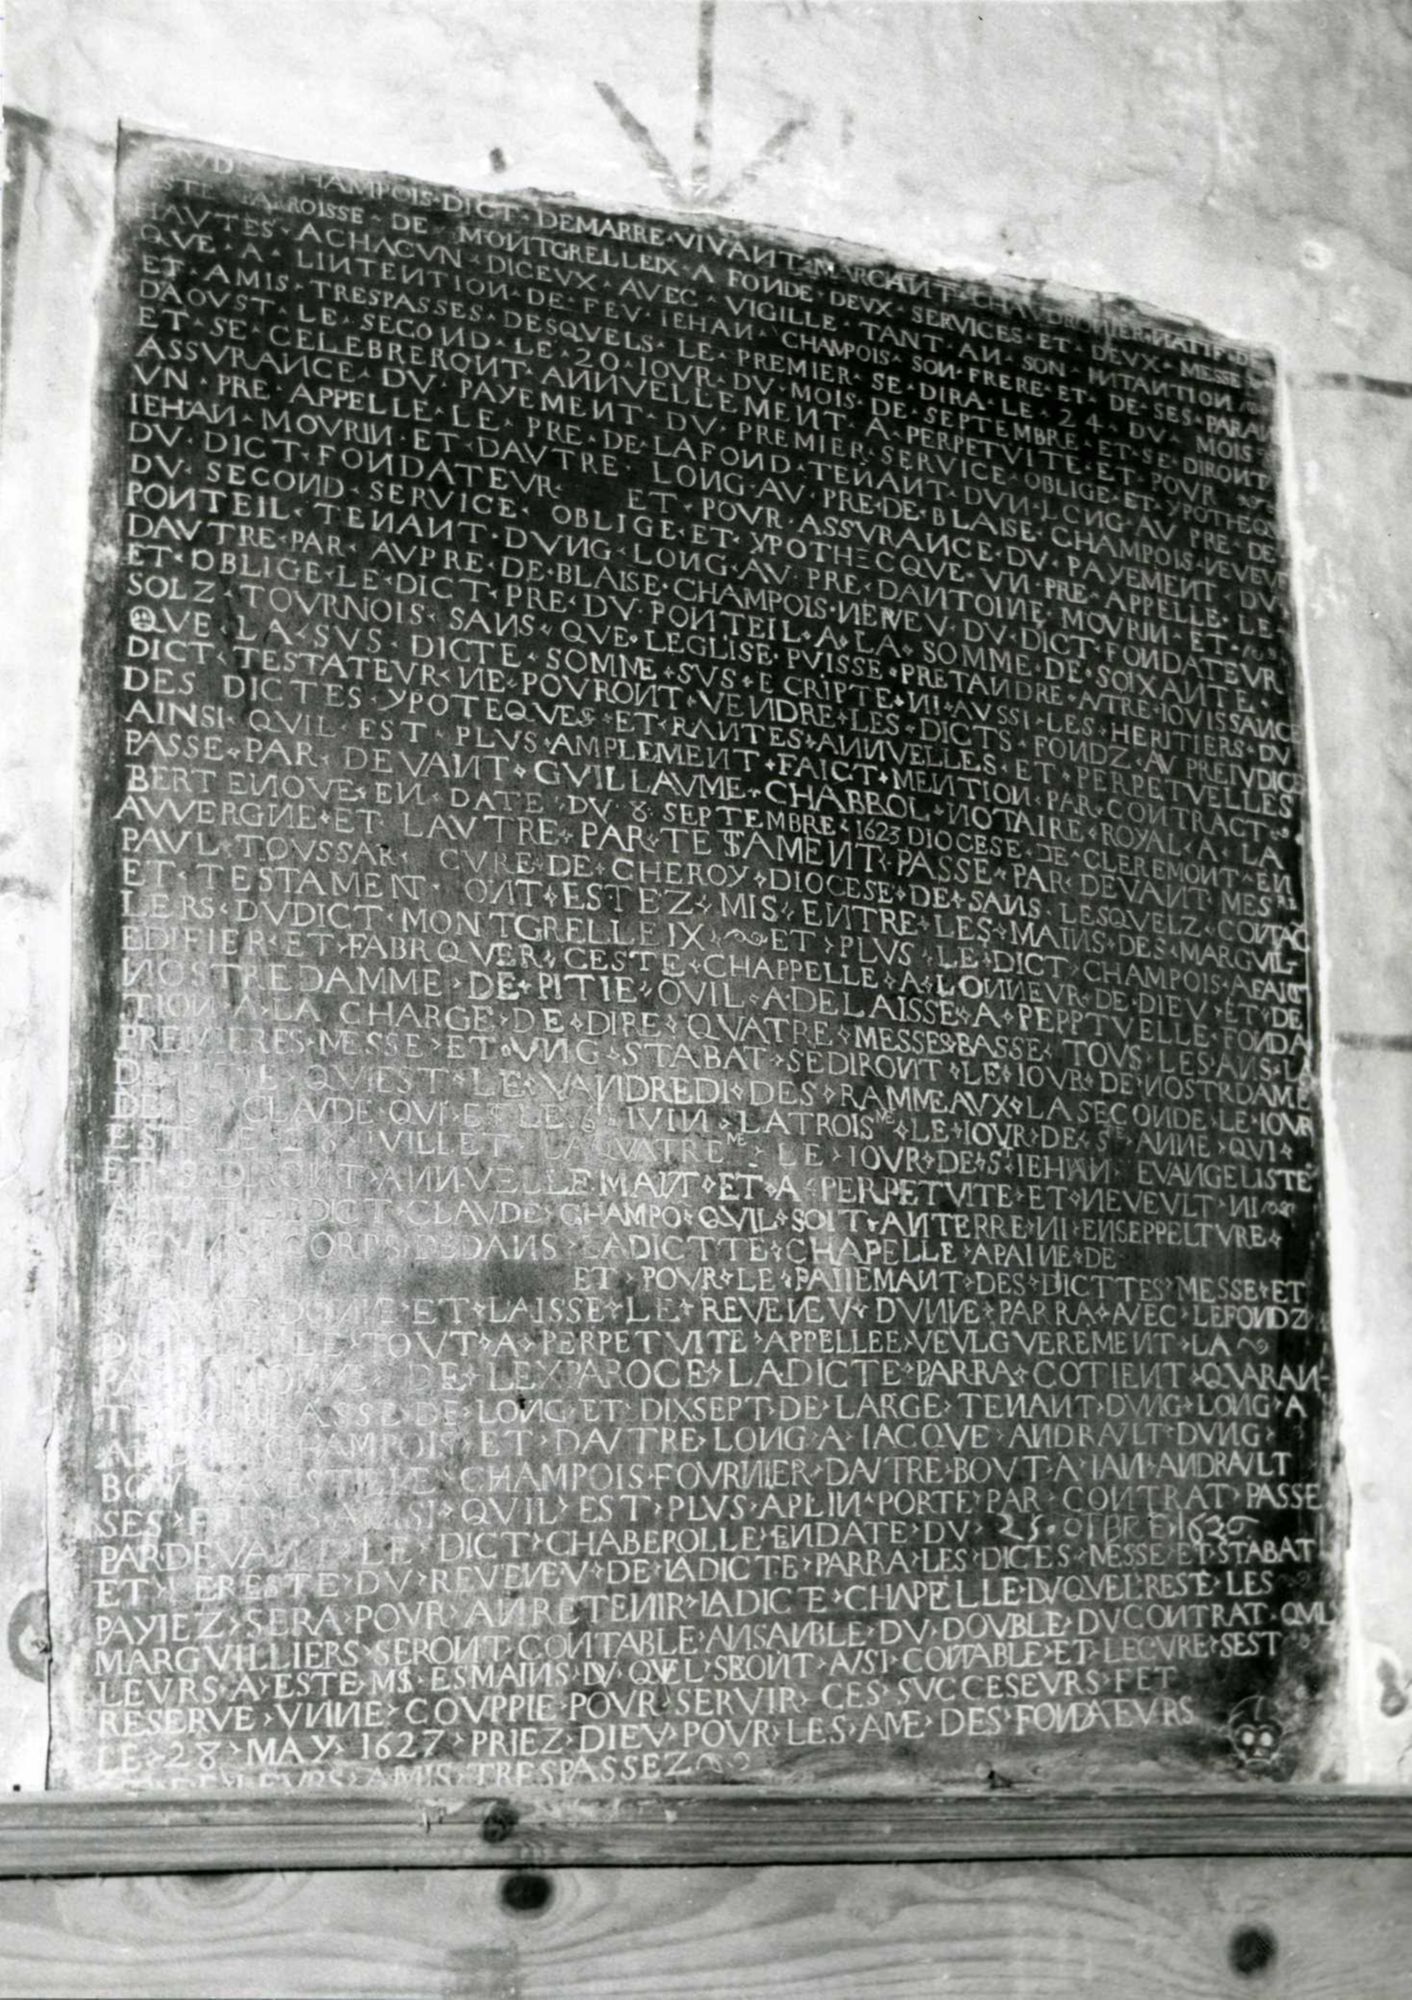 CHAMPOIS · DICT · DEMARRE · VIVANT · MARCHANT · CHAVDRONIER · NATIF · DE
PARROISSE · DE · MONTGRELLEIX · A · FONDE · DEVX · SERVICES · ET · DEVX · MESSE
HAVTES · ACHACVN · DICEVX · AVEC · VIGILLE · TANT · AN · SON · INTANTION
QVE · A · LINTENTION · DE · FEV · IEHAN · CHAMPOIS · SON · FRERE · ET · DE · SES · PARAN
ET · AMIS · TRESPASSES · DESQVELS · LE · PREMIER · SE · DIRA · LE · 24 · DV · MOIS
DAOVST · LE · SECOND · LE · 20 · IOVR · DV · MOIS · DE · SEPTEMBRE · ET · SE · DIRONT
ET · SE · CELEBRERONT · ANNVELLEMENT · A · PERPETVITE · ET · POVR
ASSVRANCE · DV · PAYEMENT · DV · PREMIER · SERVICE · OBLIGE · ET · YPOTHECQVE
VN · PRE · APPELLE · LE · PRE · DE · LAFOND · TENANT · DVN · LONG · AV · PRE · DE
IEHAN · MOVRIN · ET · DAVTRE · LONG · AV · PRE · DE · BLAISE · CHAMPOIS · NEVEV
DV · DICT · FONDATEVR · ET · POVR · ASSVRANCE · DV · PAYEMENT · DV
DV · SECOND · SERVICE · OBLIGE · ET · YPOTHECQVE · VN · PRE · APPELLE · LE
PONTEIL · TENANT · DVNG · LONG · AV · PRE · DANTOINE · MOVRIN · ET
DAVTRE · PAR · AVPRE · DE · BLAISE · CHAMPOIS · NEPVEV · DV · DICT · FONDATEVR
ET · OBLIGE · LE · DICT · PRE · DV · PONTEIL · A · LA · SOMME · DE · SOIXANTE
SOLZ · TOVRNOIS · SANS · QVE · LEGLISE · PVISSE · PRETANDRE · ATRE · IOVISSANCE
QVE · LA · SVS · DICTE · SOMNE · SVS · ECRIPTE · NI · AVSSI · LES · HERITIERS · DV
DICT · TESTATEVR · NE · POVRONT · VENDRE · LES · DICTS · FONDZ · AV · PREIVDICE
DES DICTES · YPOTEQVES · ET · RANTES · ANNVELLES · ET · PERPETVELLES
AINSI · QVIL · EST · PLVS · AMPLEMENT · FAICT · MENTION · PAR · CONTRACT
PASSE · PAR · DEVANT · GVILLAVME · CHABROL · NOTAIRE · ROYAL · A · LA
BERTENOVE · EN · DATE · DV 8 SEPTEMBRE · 1623 DIOCESE · DE · CLEREMONT · EN
AVVERGNE · ET · LAVTRE · PAR · TESTAMENT · PASSE · PAR · DEVANT · MES
PAVL · TOVSSAR · CVRE · DE · CHEROY · DIOCESE · DE · SANS · LESQVELZ · CONTAC
ET · TESTAMENT · ONT · ESTEZ · MIS · ENTRE · LES · MAINS · DES · MARGVIL-
LERS · DVDICT · MONTGRELLEIX · ET · PLVS · LE · DICT · CHAMPOIS · A FAICT
EDIFIER · ET · FABRQVER · CESTE · CHAPPELLE · A · LONNEVR · DE · DIEV · ET · DE
NOSTREDAMME · DE · PITIE · OVIL · A · DELAISSE · A · PEPPTVELLE · FONDA
TION · A · LA · CHARGE · DE · DIRE · QVATRE · MESSES · BASSE · TOVS · LES · ANS · LA
PREMIRES · MESSE · ET · VNG · STABAT · SEDIRONT · LE · IOVR · DE · NOSTRDAME
DE · PITIE · QVIEST · LE · VANDREDI · DES · RAMMEAVX · LA SECONDE · LE · IOVR
DE · S · CLAVDE QVI · EST · LE · 6 · IVIN · LATROIS ME · LE · IOVR · DE · STE ANNE · QVI
EST · LE · 26 · IVILLET · LAQVATRE ME · LE · IOVR · DE · S · IEHAN · EVANGELISTE
ET · SE · DIRONT · ANNVELLEMANT · ET · A · PERPETVITE · ET · NEVEVLT · NI
DICT · CLAVDE · CHAMPO · QVIL · SOIT · ANTERRE · NI · ENSEPPELTVRE
CORPS · DEDANS · LADICTTE · CHAPELLE · APAINE · DE
ET · POVR · LE · PAIIEMANT · DES · DICTTES · MESSE · ET
DONNE · ET · LAISSE · LE · REVENEV · DVNNE · PARRA · AVEC · LEFONDZ
LE · TOVT · A · PERPETVITE · APPELLEE · VEVLGVEREMENT · LA
DE · LEXPAROCE · LADICTE · PARRA · COTIENT · QVARAN-
DE · LONG · ET · DIXSEPT · DE · LARGE · TENANT · DVNG · LONG · A
CHAMPOIS · ET · DAVTRE · LONG · A · IACQVE · ANDRAVLT · DVNG
CHAMPOIS · FOVRNIER · DAVTRE · BOVT · A · IAN · ANDRAVLT
SES · QVIL · EST · PLVS · APLIN · PORTE · PAR · CONTRAT · PASSE
PARDEVANT · LE · DICT · CHABEROLLE · ENDATE · DV · 25
ET · LERESTE · DV · REVENEV · DE · LADICTE · PARRA · LES · DICTES · MESSE · ET · STABAT
PAYIEZ · SERA · POVR · ANRETENIR · LADICTE · CHAPELLE · DVQVEL · RESTE · LES
MARGVILLIERS · SERONT · CONTABLE · ANSANBLE · DV · DOVBLE · DVCONTRAT · QVIL
LEVRS · A · ESTE · MS · ESMAINS · DVQVEL · SRONT · AISI · CONTABLE · ET · LECVRE · SEST
RESERVE · VNNE · COVPPIE · POVR · SERVIR · CES · SVCCESEVRS · FET
LE · 28 · MAY · 1627 · PRIEZ · DIEV · POVR · LES · AME · DES · FONDATEVRS
LEVRS · AMIS · TRESPASSEZ